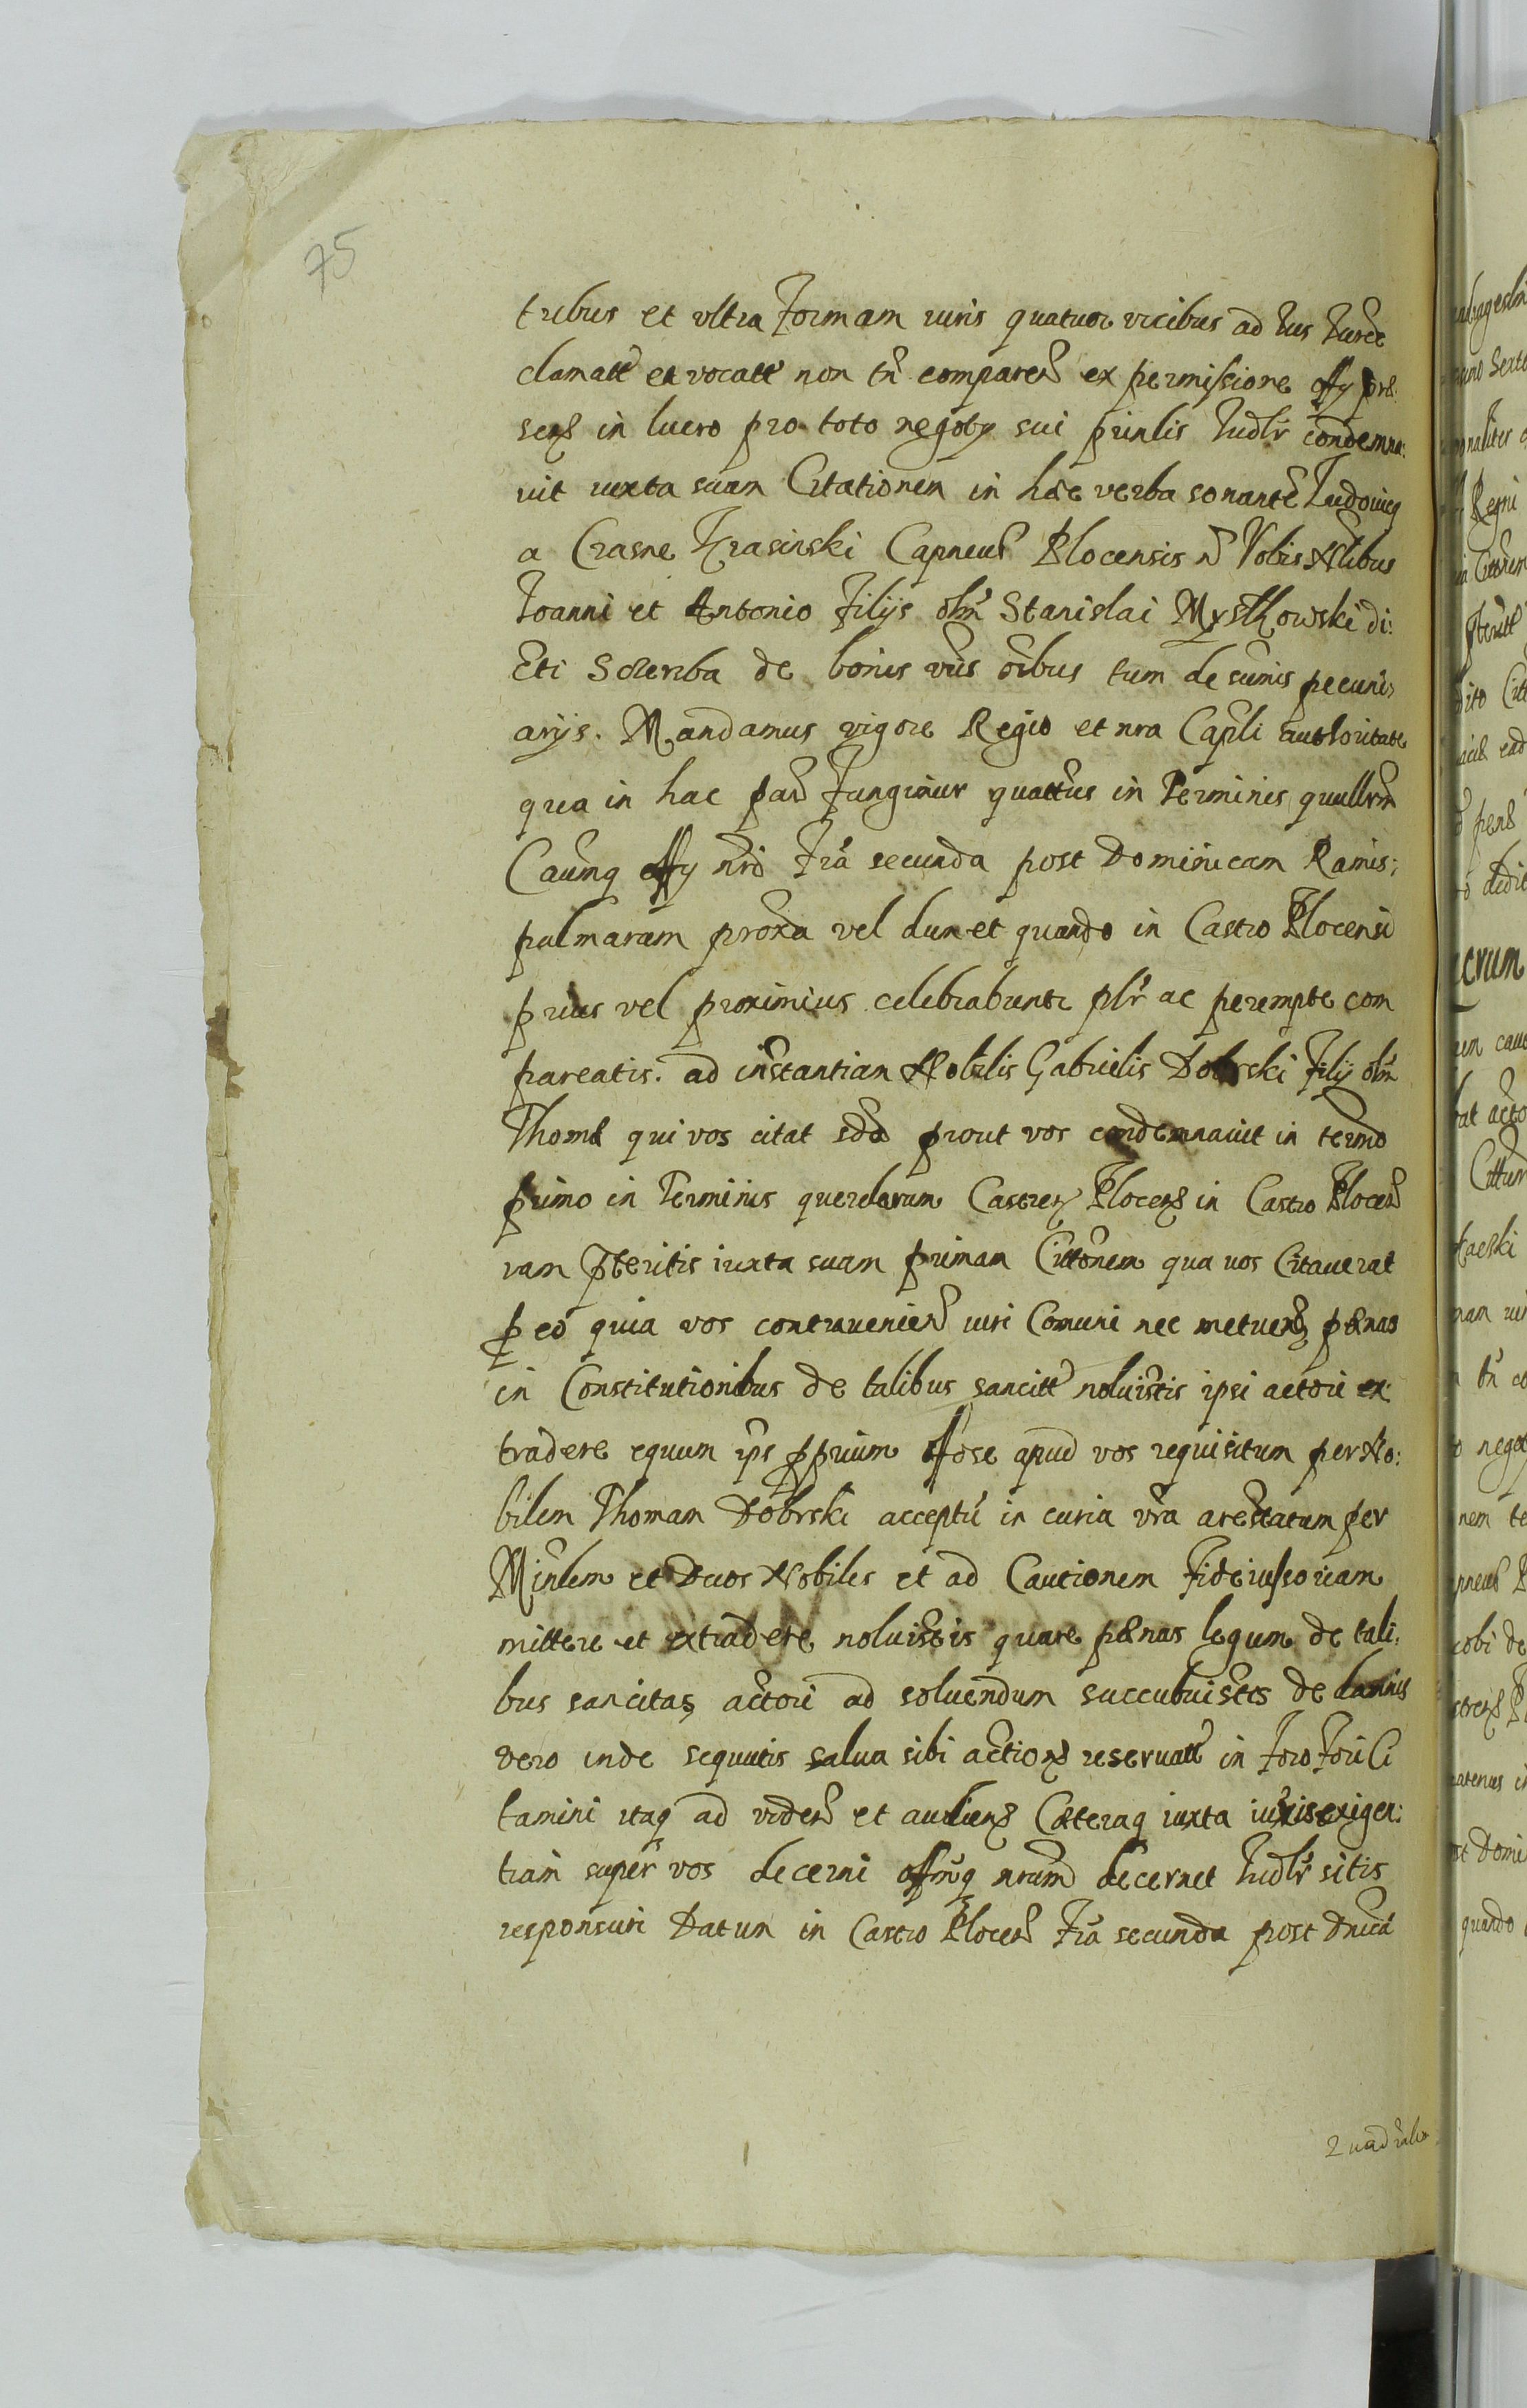 75
tribus et ultra Formam iuris quatuor vicibus ad Ius Iurde
clamatt et vocatt non tn comparen ex permissione offy pre:
sens in lucro pro toto negoty sui prinlis Iudlr condemna:
uit iuxta suam Citationem in hæc verba sonante Ludouicq
a Crasne Krasinski Capneus Plocensis n Vobis Nlibus
Ioanni et Antonio Filijs olm Stanislai Mystkowski di:
cti de bonis vris oibus tum de sumis pecuni
arijs. Mandamus vigore Regio et nra Capli authoritate
qua in hac par Fungimur quattus in Terminis qurllrm
offy nrd Fria secunda post Dominicam Ramis
palmarum proxa vel dum et quando in Castro Plocensi
prius vel proximius celebrabuntr plr ac perempte com
pareatis. ad instantiam Nobilis Gabrielis Dobrski Filij olm
Thomæ qui vos citat sdo prout vos condemnauit in termo
primo in Terminis querelarum Castren Plocens in Castro Plocen
iam pteritis iuxta suam primam Cittonem qua uos Citauerat
p eo quia vos contrauenien iuri Comuni nec metuens pœnas
in Constitutionibus de talibus sancitt noluistis ipsi actori ex
tradere equum ips pprium apud vos requisitum per No:
bilem Thomam Dobrski acceptu in curia vra arestatum per
Minlem et Duos Nobiles et ad Cautionem Fideiussoriam
mittere et extradere noluistis quare pœnas legum de tali
bus sancitas actori ad soluendum succubuistis de damnis
vero inde sequutis salua sibi actions reseruatt in Foro Fori Ci
tamini itaq ad viden et audiens Cæteraq iuxta iuris exigen:
tiam super vos decerni offmq nrum decernet Iudlr sitis
responsuri Datum in Castro Plocen Fria secunda post Dnica